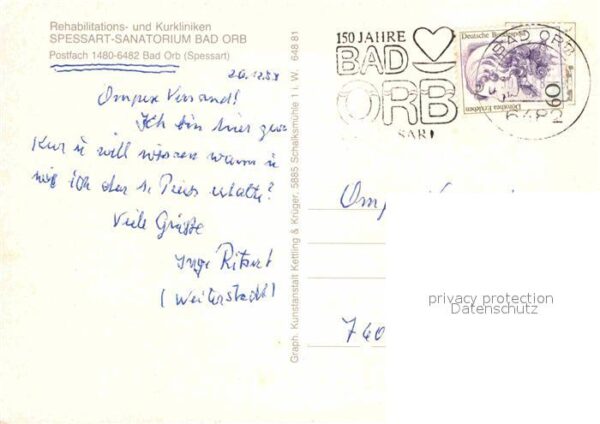 Rehabilitations- und Kurkliniken
SPESSART-SANATORIUM BAD ORB
Postfach 1480-6482 Bad Orb (Spessart)
Ompex Versand!
Ich bin hier zur
Kur u will wissen wann u
wo ich den 1. Preis erhalte?
Viele Grüsse
Inge Ritzert
(Weiterstadt)
Graph. Kunstanstalt Kettling & Krüger, 5885 Schalksmühle 1 i. W. 648 81
150 JAHRE
BAD
ORB
Deutsche Bundespost
Dorothea Erxleben
60
BAD ORB
6482
Omp
privacy protection
Datenschutz